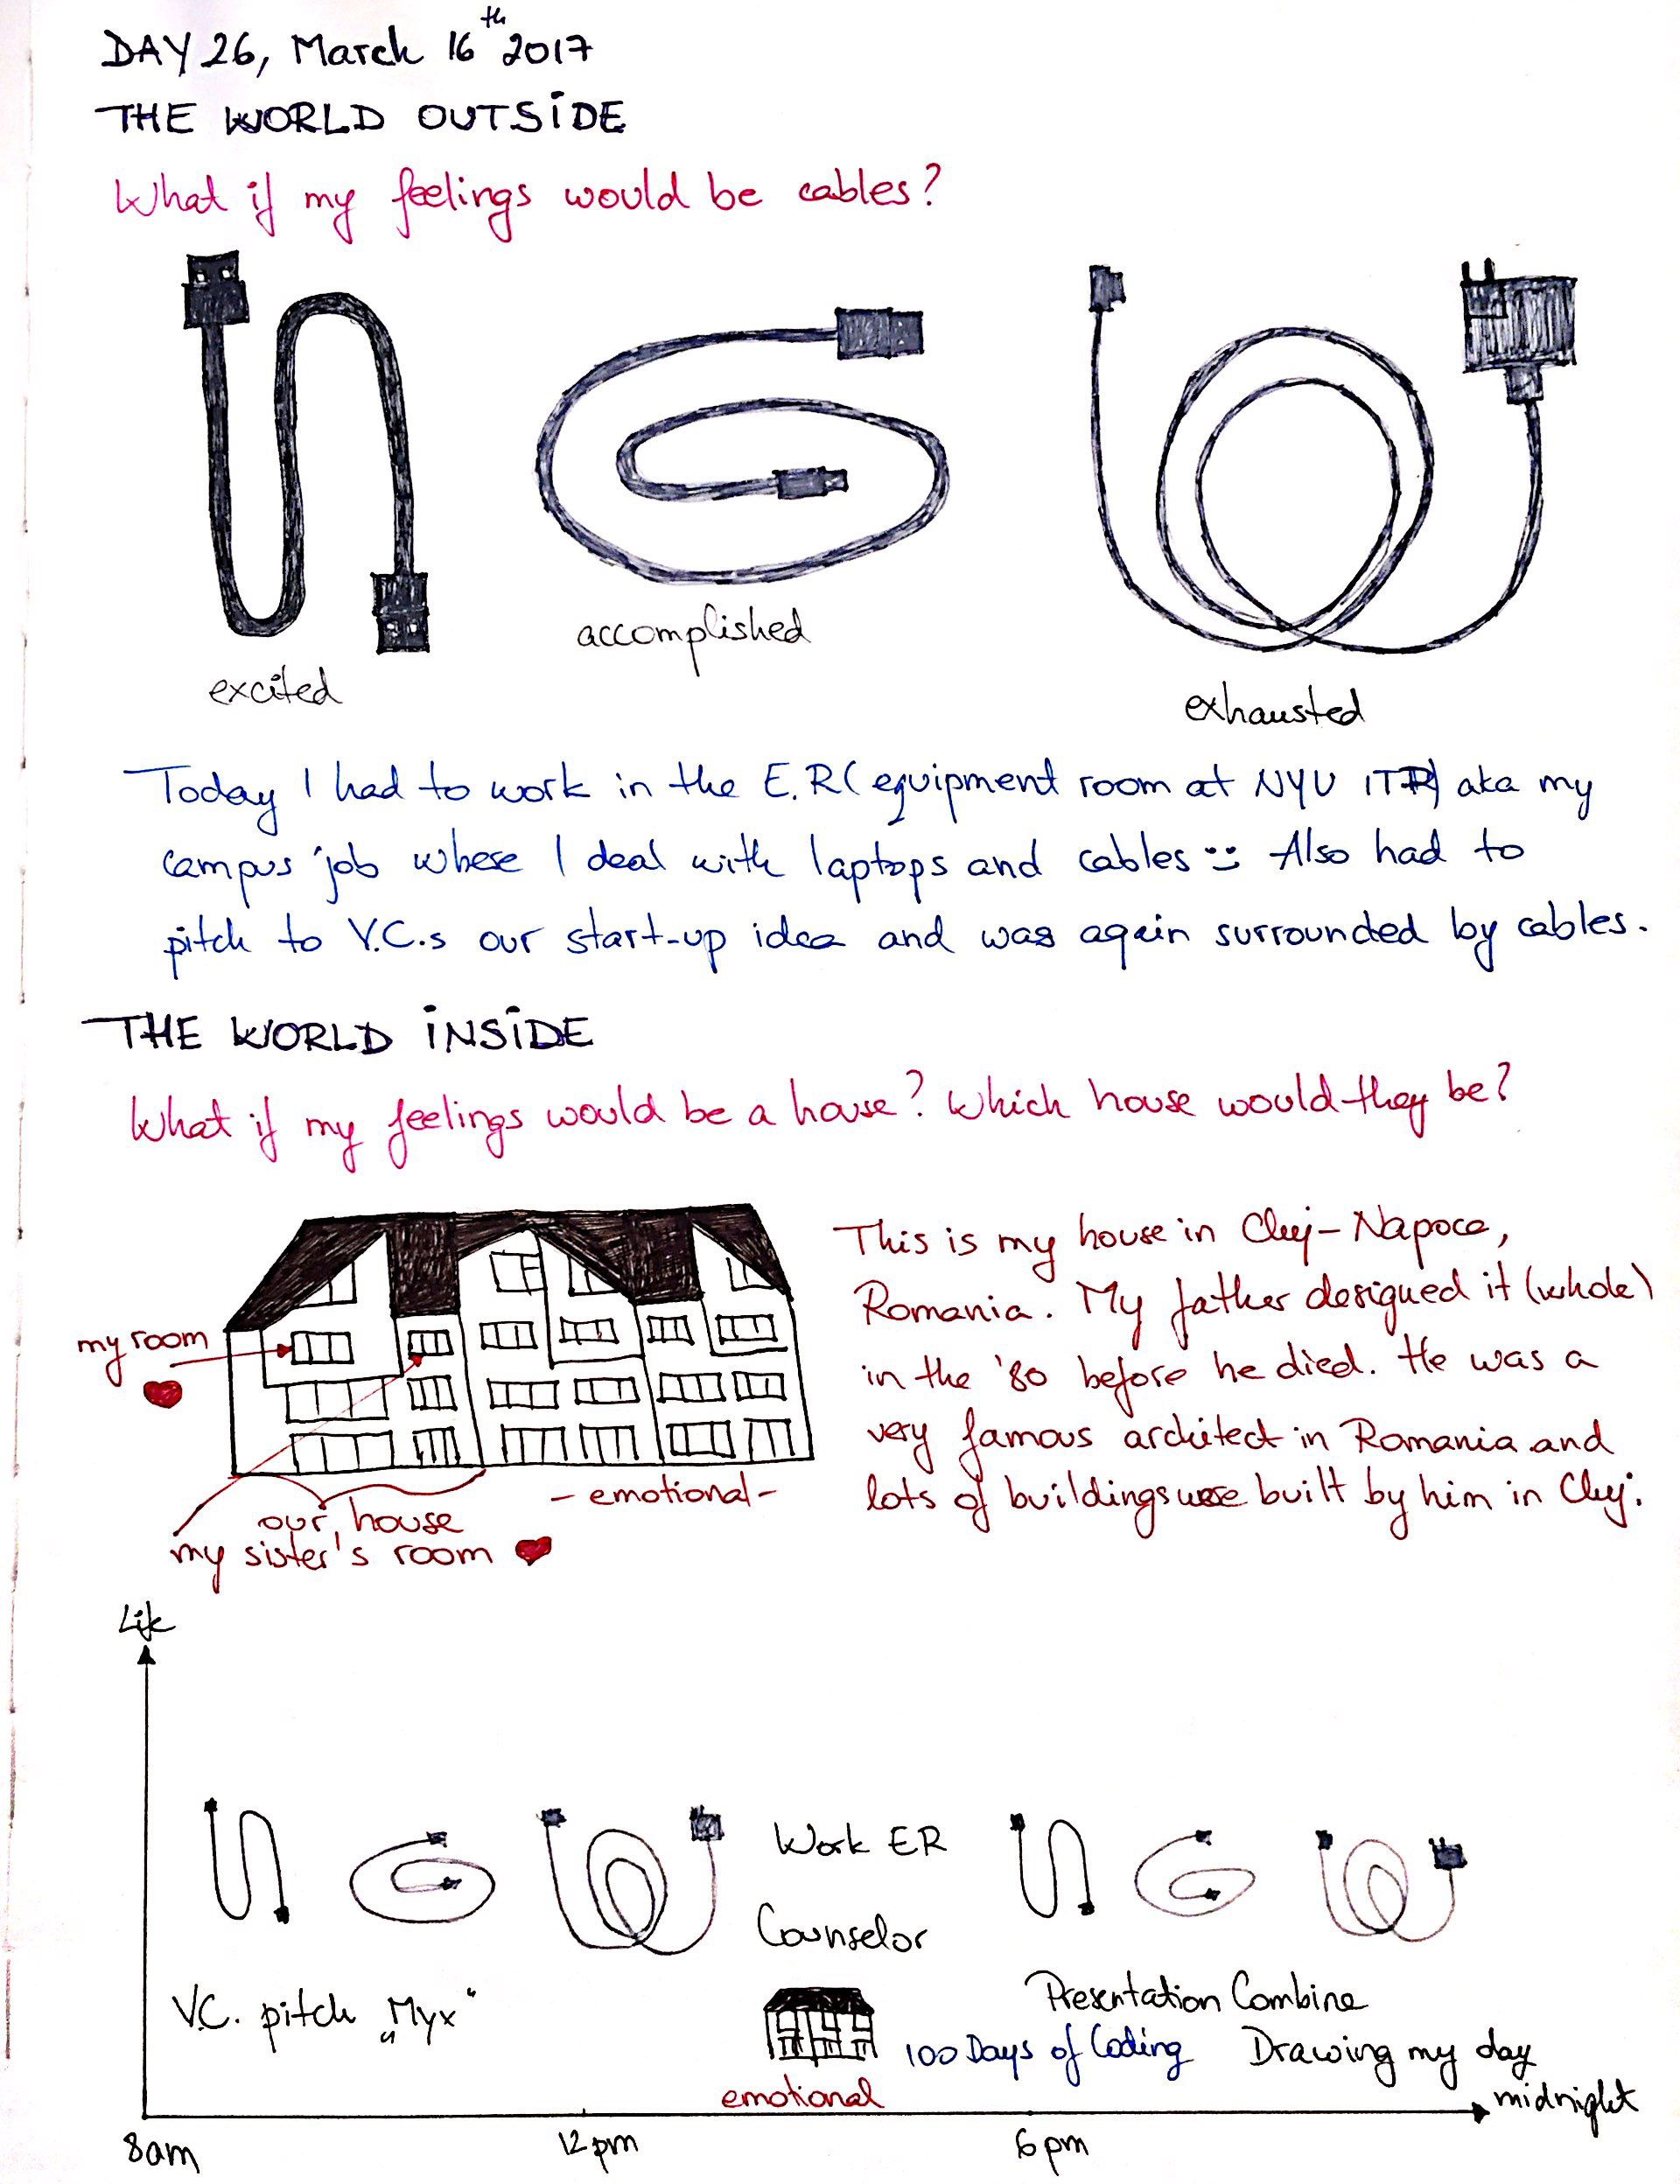 DAY 26, March 16th 2017
THE WORLD OUTSIDE
What if my feelings would be cables?
excited
accomplished
exhausted
Today I had to work in the E.R (equipment room at NYU ITP) aka my
campus job where I deal with laptops and cables :) Also had to
pitch to V.C.s our start-up idea and was again surrounded by cables.
THE WORLD INSIDE
What if my feelings would be a house? Which house would they be?
This is my house in Cluj-Napoca,
Romania. My father designed it (whole)
in the '80 before he died. He was a
very famous architect in Romania and
lots of buildings were built by him in Cluj.
my room
our house
my sister's room
- emotional -
Life
Work ER
Counselor
V.C. pitch „Myx"
Presentation Combine
100 Days of Coding
Drawing my day
emotional
midnight
8am
12pm
6pm